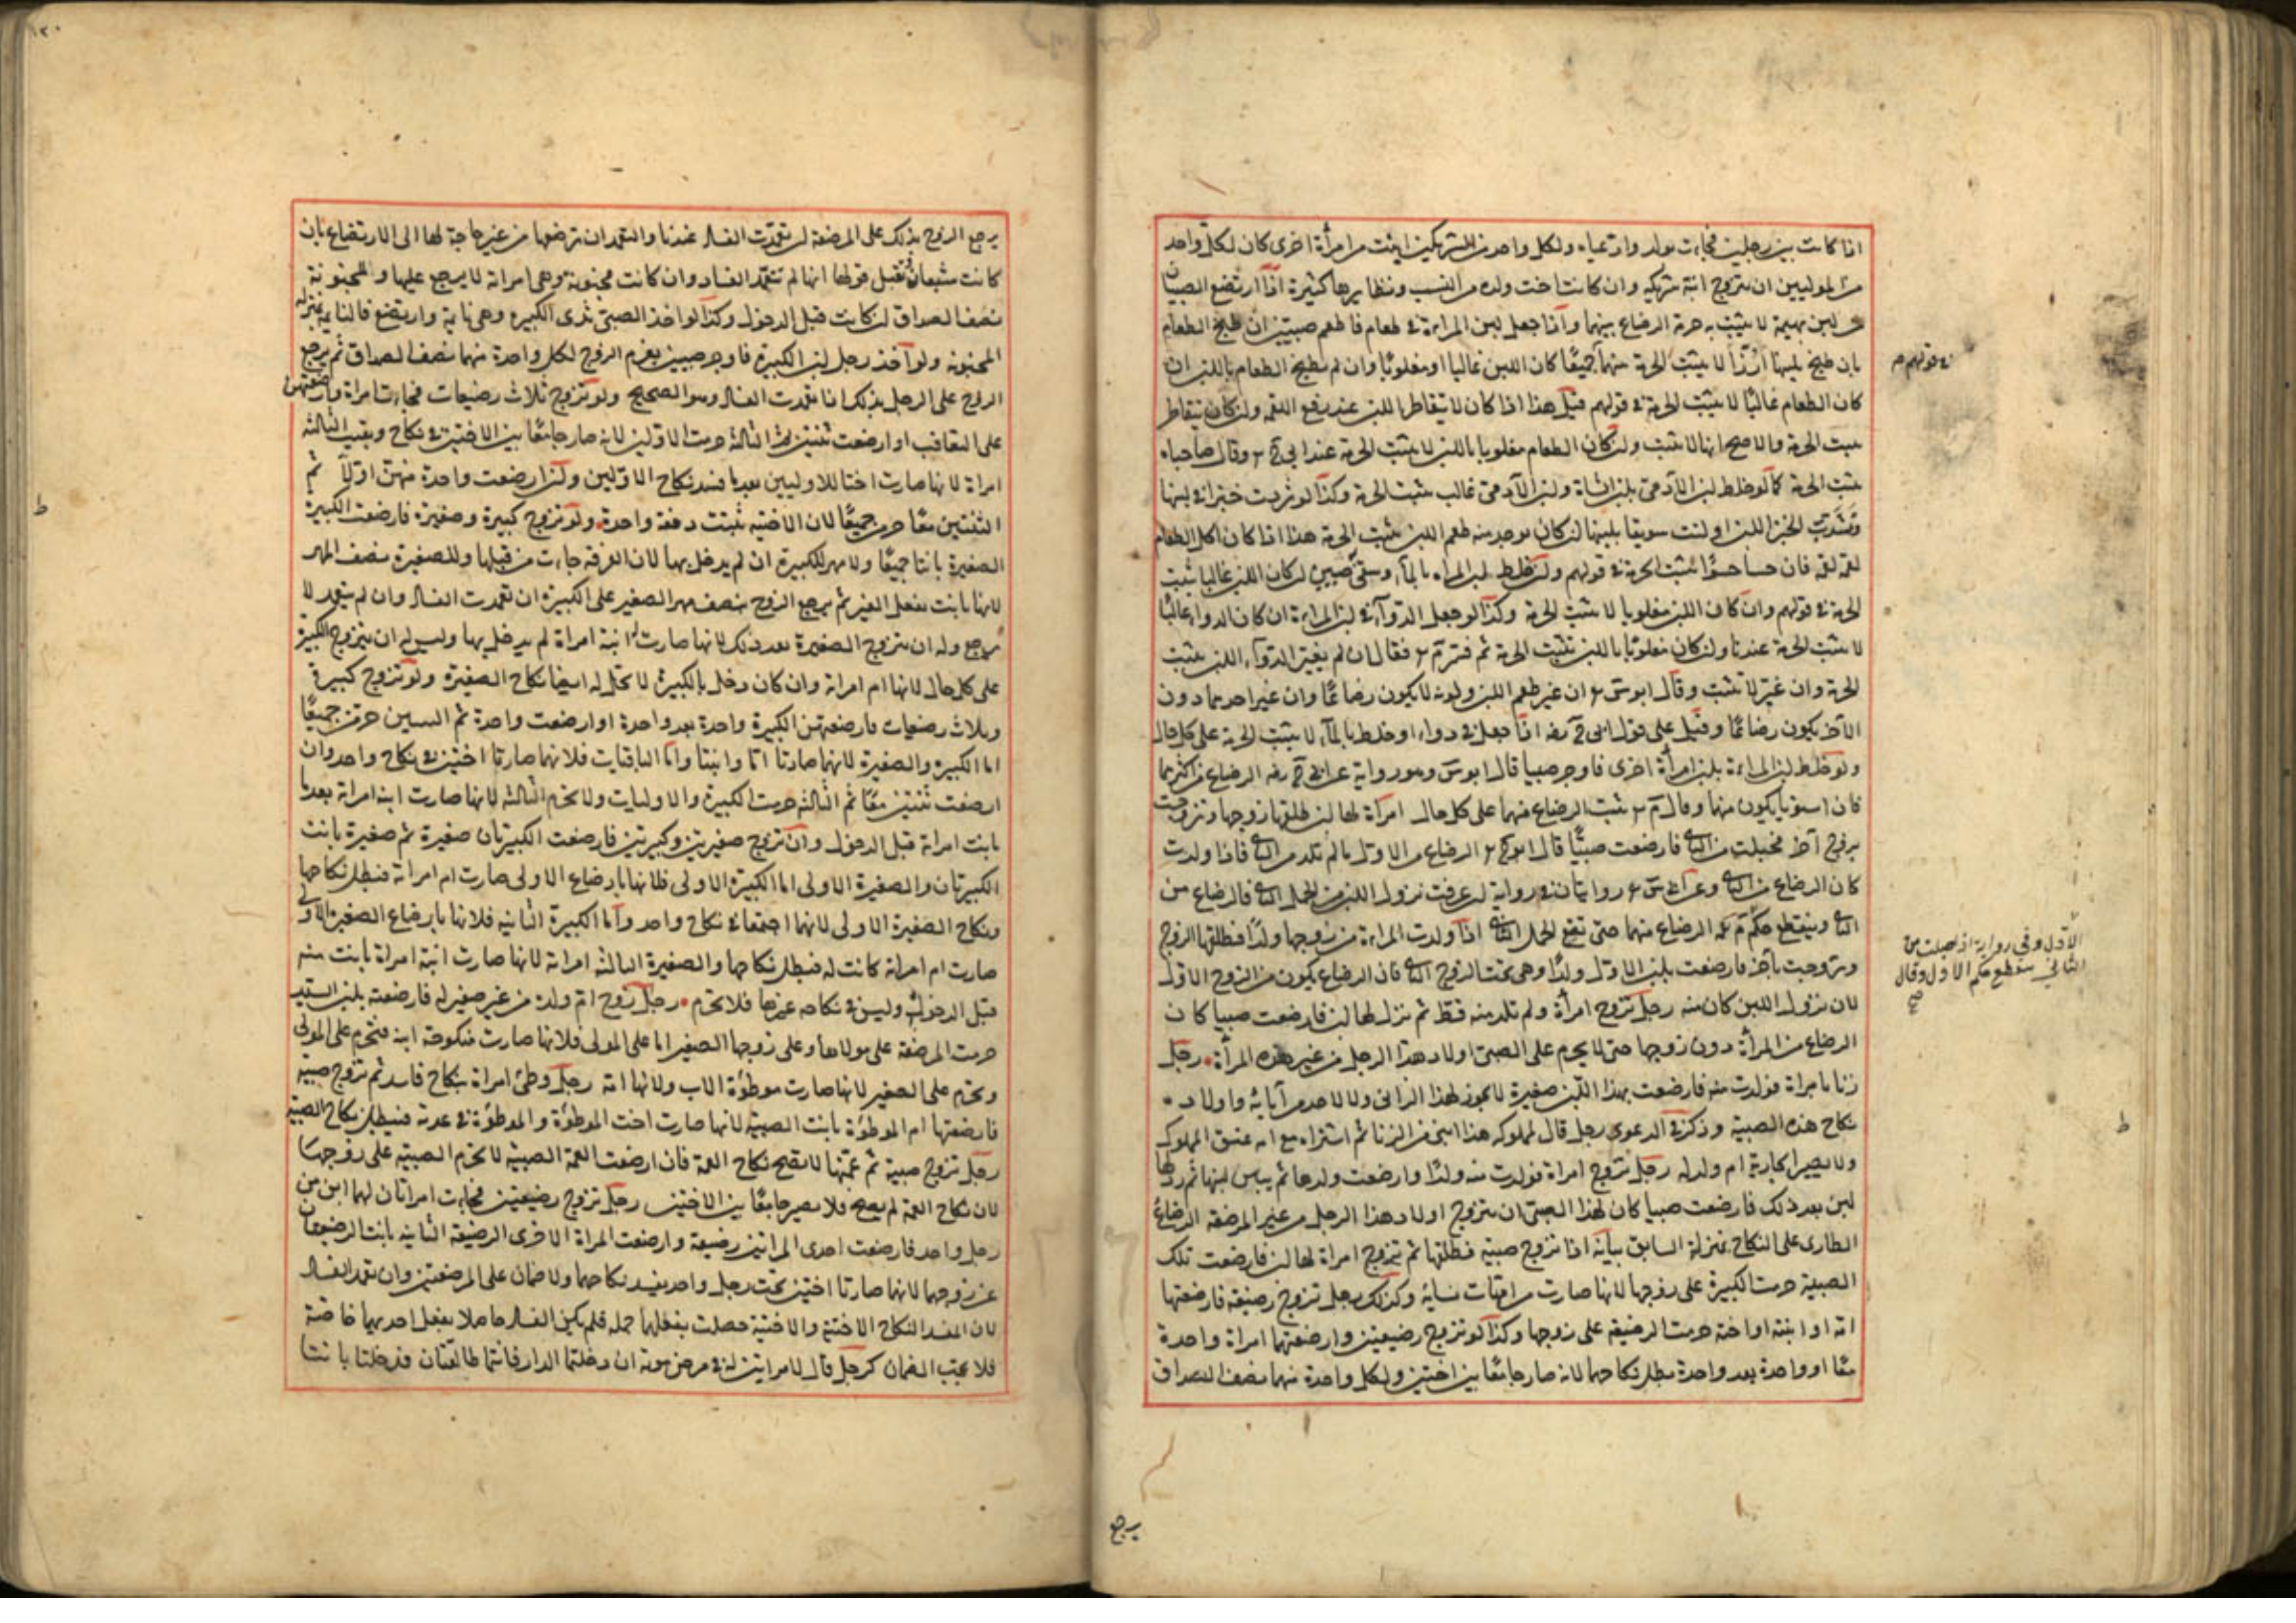 اذا كانت بين رجلين فجاءت بولد وادعياه ولكل واحد من الشريكين ابنت من امرأة اخرى كان لكل واحد
من الموليين ان يتزوج ابنة شريكه وان كانتا اخت ولده من النسب ونظايرها كثيرة اذا ارتضع الصبيان
من لبن بهيمة لا يثبت به حرمة الرضاع بينهما واذا جعل لبن المراة في طعام فاطعم صبيين ان طبخ الطعام
بان طبخ بلبنها ارزا لا يثبت الحرمة منهما جميعا كان اللبن غالبا او مغلوبا وان لم يطبخ الطعام باللبن ان
في قولهم م
كان الطعام غالبا لا يثبت الحرمة في قولهم قيل هذا اذا كان لا يتقاطر اللبن عند رفع اللقمة ولن كان يتقاطر
يثبت الحرمة والاصح انها لا يثبت ولن كان الطعام مغلوبا باللبن لا يثبت الحرمة عند ابي ح وقال صاحباه
يثبت الحرمة كما لو خلط لبن الآدمي بلبن الشاة ولبن الآدمي غالب يثبت الحرمة وكذا لو ثردت خبزا في لبنها
وتشربت الخبز اللبن او لتت سويقا بلبنها لن كان يوجد منه طعم اللبن يثبت الحرمة هذا اذا كان اكل الطعام
لقمة لقمة فان حسا حسوا يثبت الحرمة في قولهم ولن خلط لبن المراة بالماء وسقي صبي لن كان اللبن غالبا يثبت
الحرمة في قولهم وان كان اللبن مغلوبا لا يثبت الحرمة وكذا لو جعل الدواء في لبن المراة ان كان الدواء غالبا
لا يثبت الحرمة عندنا ولن كان مغلوبا باللبن يثبت الحرمة ثم فسر م فقال ان لم يغير الدواء اللبن يثبت
الحرمة وان غير لا يثبت وقال ابو س ان غير طعم اللبن ولونه لا يكون رضاعا وان غير احدهما دون
الآخر يكون رضاعا وقيل على قول ابي ح رضه اذا جعل في دواء او خلط بالماء لا يثبت الحرمة على كل حال
ولو خلط لبن المراة بلبن امرأة اخرى فاوجر صبيا قال ابو س وهو رواية عن ابي ح رضه الرضاع من اكثرهما
فان استويا يكون منهما وقال م يثبت الرضاع منهما على كل حال امرأة لها لبن طلقها زوجها وتزوجت
بزوج آخر فحبلت من الثاني فارضعت صبيا قال ابو ح الرضاع من الاول ما لم تلد من الثاني فاذا ولدت
كان الرضاع من الثاني وعن ابي س روايتان في رواية لن عرفت نزول اللبن من الحمل الثاني فالرضاع من
الثاني وينقطع حكم الرضاع منهما حتى تضع الحمل الثاني اذا ولدت المراة من زوجها ولدا فطلقها الزوج
الأول وفي رواية اذا حبلت من
الثاني ينقطع حكم الاول وقال
صح
وتزوجت بآخر فارضعت بلبن الاول ولدا وهي تحت الزوج الثاني فان الرضاع يكون من الزوج الاول
لان نزول اللبن كان منه رجل تزوج امرأة ولم تلد منه قط ثم نزل لها لبن فارضعت صبيا كان
الرضاع من المرأة دون زوجها حتى لا يحرم على الصبي اولاد هذا الرجل من غير هذه المرأة رجل
زنا بامراة فولدت منه فارضعت بهذا اللبن صغيرة لا يجوز لهذا الزاني ولا لاحد من آبائه واولاده
نكاح هذه الصبية وذكر في الدعوى رجل قال لمملوكه هذا ابني من الزنا ثم اشتراه مع امه عتق المملوك
ولا يصير الجارية ام ولد له رجل تزوج امراة فولدت منه ولدا وارضعت ولدها ثم يبس لبنها ثم در لها
لبن بعد ذلك فارضعت صبيا كان لهذا الصبي ان يتزوج اولاد هذا الرجل من غير المرضعة الرضاع
الطارى على النكاح بمنزلة السابق بيانه اذا تزوج صبية فطلقها ثم تزوج امراة لها لبن فارضعت تلك
الصبية حرمت الكبيرة على زوجها لانها صارت من امهات نسائه وكذلك رجل تزوج رضيعة فارضعتها
امه او ابنته او اخته حرمت الرضيعة على زوجها وكذا لو تزوج رضيعتين وارضعتهما امراة واحدة
معا او واحدة بعد واحدة بطل نكاحهما لانه صار جامعا بين اختين ولكل واحدة منهما نصف الصداق
يرجع
١٢٠
يرجع الزوج بذلك على المرضعة لن تعمدت الفساد عندنا والتعمد ان ترضعها من غير حاجة لها الى الارتضاع بان
كانت شبعانة وتقبل قولها انها لم تتعمد الفساد وان كانت مجنونة وهي امراته لا يرجع عليها وللمجنونة
نصف الصداق لن كانت قبل الدخول وكذا لو اخذ الصبي ثدى الكبيرة وهي نايمة وارتضع فالنايمة بمنزلة
المجنونة ولو اخذ رجل لبن الكبيرة فاوجر صبيتين يغرم الزوج لكل واحدة منهما نصف الصداق ثم يرجع
الزوج على الرجل بذلك ان تعمدت الفساد وهو الصحيح ولو تزوج ثلاث رضيعات فجاءت امراة وارضعتهن
على التعاقب او ارضعت ثنتين ثم الثالثة حرمت الاوليين لانه صار جامعا بين الاختين في نكاح وبقيت الثالثة
امراة لانها صارت اختا للاوليين بعد ما فسد نكاح الاوليين ولن ارضعت واحدة منهن اولا ثم
الثنتين معا حرمن جميعا لان الاختية ثبتت دفعة واحدة ولو تزوج كبيرة وصغيرة فارضعت الكبيرة
الصغيرة بانتا جميعا ولا مهر للكبيرة ان لم يدخل بها لان الفرقة جاءت من قبلها وللصغيرة نصف المهر
لانها بانت بفعل الغير ثم يرجع الزوج بنصف مهر الصغير على الكبيرة ان تعمدت الفساد وان لم يتعمد لا
يرجع وله ان يتزوج الصغيرة بعد ذلك لانها صارت ابنة امراة لم يدخل بها وليس له ان يتزوج الكبيرة
على كل حال لانها ام امراته وان كان دخل بالكبيرة لا تحل له ايضا نكاح الصغيرة ولو تزوج كبيرة
وثلاث رضيعات فارضعتهن الكبيرة واحدة بعد واحدة او ارضعت واحدة ثم الثنتين حرمن جميعا
اما الكبيرة والصغيرة لانهما صارتا اما وابنتا واما الباقيات فلانهما صارتا اختين في نكاح واحد وان
ارضعت ثنتين معا ثم الثالثة حرمت الكبيرة والاوليات ولا تحرم الثالثة لانها صارت ابنة امراته بعد ما
بانت امراته قبل الدخول وان تزوج صغيرتين وكبيرتين فارضعت الكبيرتان صغيرة ثم صغيرة بانت
الكبيرتان والصغيرة الاولى اما الكبيرة الاولى فلانها بارضاع الاولى صارت ام امراته فبطل نكاحها
ونكاح الصغيرة الاولى لانهما اجتمعا في نكاح واحد واما الكبيرة الثانية فلانها بارضاع الصغيرة الاولى
صارت ام امراة كانت له فبطل نكاحها والصغيرة الثالثة امراته لانها صارت ابنة امراة بانت منه
قبل الدخول وليس في نكاحه غيرها فلا تحرم رجل زوج ام ولده من غير صغير له فارضعته بلبن السيد
حرمت المرضعة على مولاها وعلى زوجها الصغير اما على المولى فلانها صارت منكوحة ابنه فتحرم على المولى
وتحرم على الصغير لانها صارت موطوءة الاب ولانها امه رجل وطئ امراة بنكاح فاسد ثم تزوج صبية
فارضعتها ام الموطوءة بانت الصبية لانها صارت اخت الموطوءة والموطوءة في عدته فيبطل نكاح الصبية
رجل تزوج صبية ثم عمتها لا يصح نكاح العمة فان ارضعت العمة الصبية لا تحرم الصبية على زوجها
لان نكاح العمة لم يصح فلا يصير جامعا بين الاختين رجل تزوج رضيعتين فجاءت امراتان لهما لبن من
رجل واحد فارضعت احدى المراتين رضيعة وارضعت المراة الاخرى الرضيعة الثانية بانت الرضيعتان
عن زوجهما لانهما صارتا اختين تحت رجل واحد فيفسد نكاحهما ولا ضمان على المرضعتين وان تعمدتا الفساد
لان المفسد للنكاح الاختية والاختية حصلت بفعلهما جملة فلم يكن الفساد حاصلا بفعل احديهما خاصة
فلا يجب الضمان كرجل قال لامرايتين له في مرض موته ان دخلتما الدار فانتما طالقتان فدخلتا بانتا
ط
ط